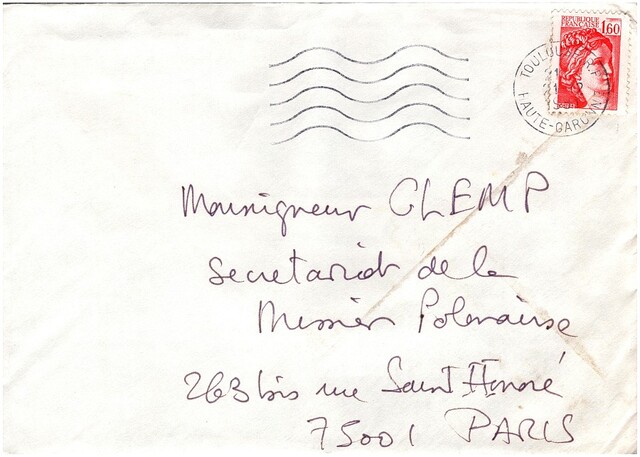 REPUBLIQUE
FRANÇAISE
1,60
TOULOUSE R.P.
HAUTE-GARONNE
Monsigneur GLEMP
secretariat de la
Mission Polonaise
263 bis rue Saint Honoré
75001 PARIS